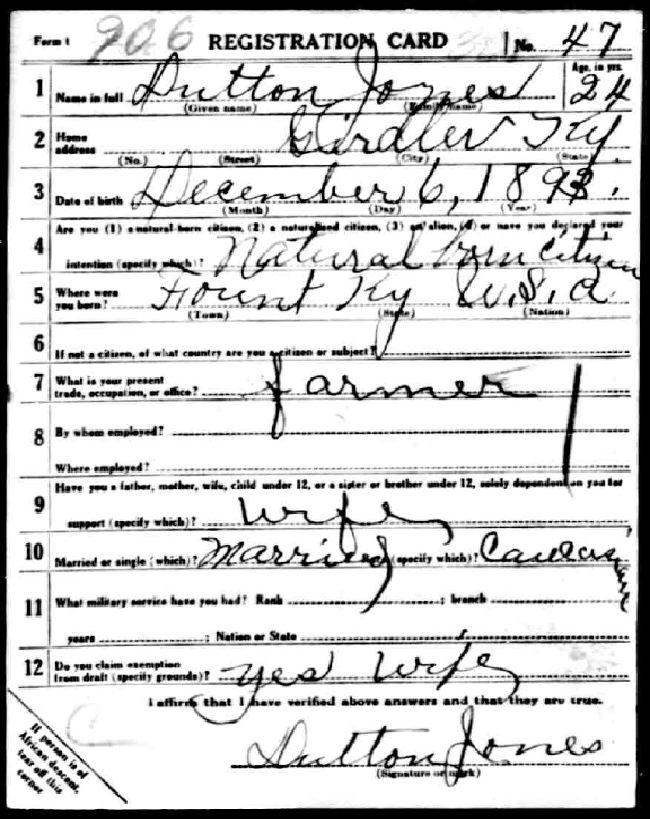 Form 1 906 REGISTRATION CARD No. 47
1 Name in full Dutton Jones Age, in yrs. 24
(Given name) (Family name)
2 Home address Girdler Ky
(No.) (Street) (City) (State)
3 Date of birth December 6, 1893.
(Month) (Day) (Year)
4 Are you (1) a natural-born citizen, (2) a naturalized citizen, (3) an alien, (4) or have you declared your
intention (specify which)? Natural born citizen
5 Where were you born? Fount Ky U.S.A
(Town) (State) (Nation)
6 If not a citizen, of what country are you a citizen or subject?
7 What is your present trade, occupation, or office? farmer
8 By whom employed?
Where employed?
9 Have you a father, mother, wife, child under 12, or a sister or brother under 12, solely dependent on you for
support (specify which)? wife
10 Married or single (which)? Married Race (specify which)? Caucasian
11 What military service have you had? Rank ; branch
years ; Nation or State
12 Do you claim exemption from draft (specify grounds)? yes wife
I affirm that I have verified above answers and that they are true.
Dutton Jones
(Signature or mark)
If person is of
African descent,
tear off this
corner